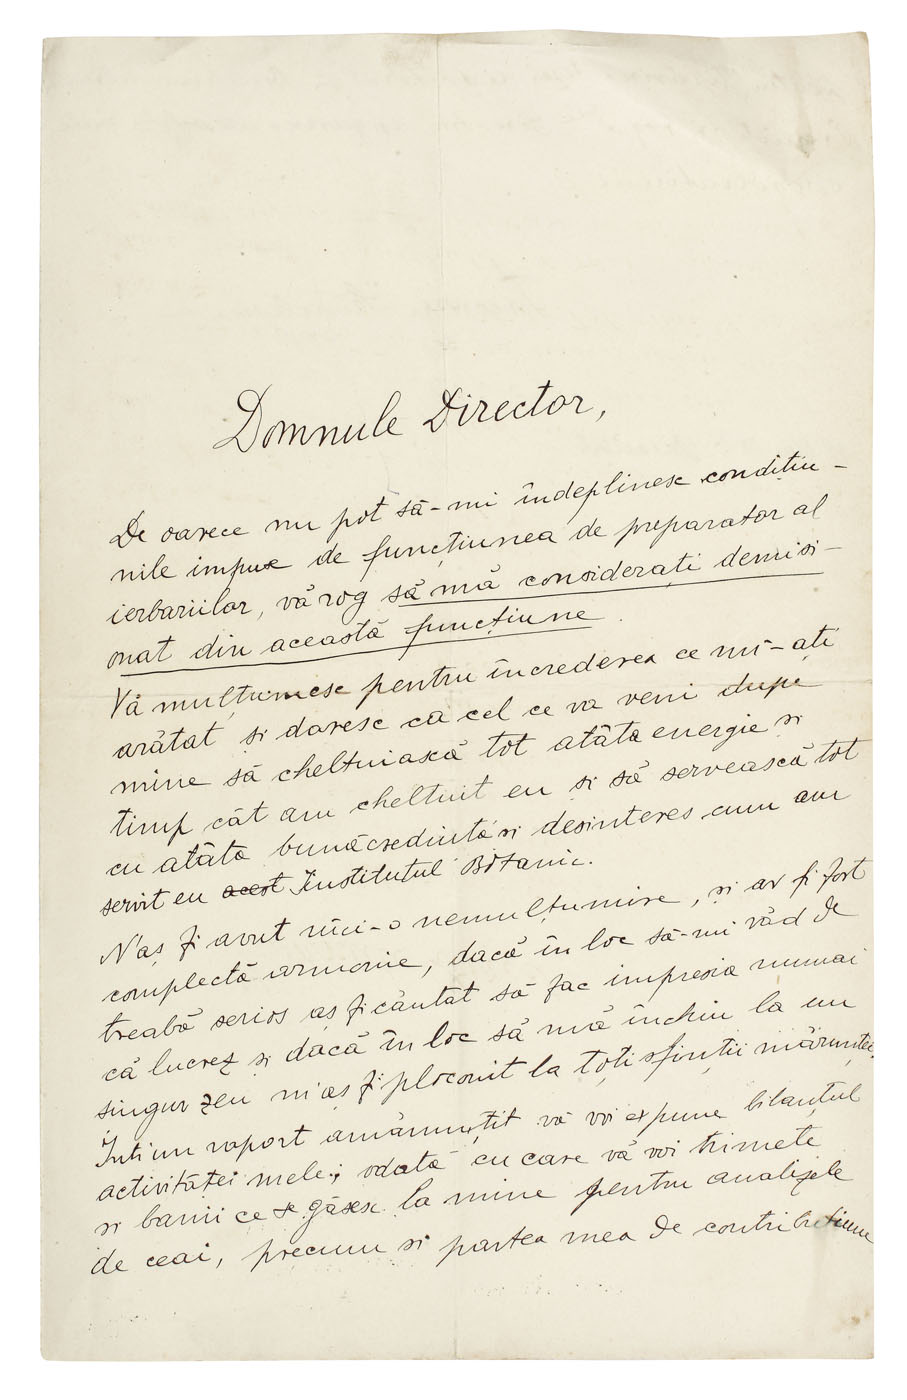 Domnule Director,
De oarece nu pot să-mi îndeplinesc condițiu-
nile impuse de funcțiunea de preparator al
ierbariilor, vă rog să mă considerați demisi-
onat din această funcțiune.
Vă mulțumesc pentru încrederea ce mi-ați
arătat și doresc ca cel ce va veni dupe
mine să cheltuiască tot atâta energie și
timp cât am cheltuit eu și să servească tot
cu atâta bunăcredință și desinteres cum am
servit eu acest Institutul Botanic.
N'aș fi avut nici-o nemulțumire, și ar fi fost
complectă armonie, dacă în loc să-mi văd de
treabă serios aș fi căutat să fac impresia numai
că lucrez și dacă în loc să mă închin la un
singur zeu m'aș fi ploconit la toți sfinții mărunței.
Într'un raport amănunțit vă voi expune bilanțul
activităței mele; odată cu care vă voi trimete
și banii ce se găsesc la mine pentru analizele
de ceai, precum și partea mea de contribuțiune